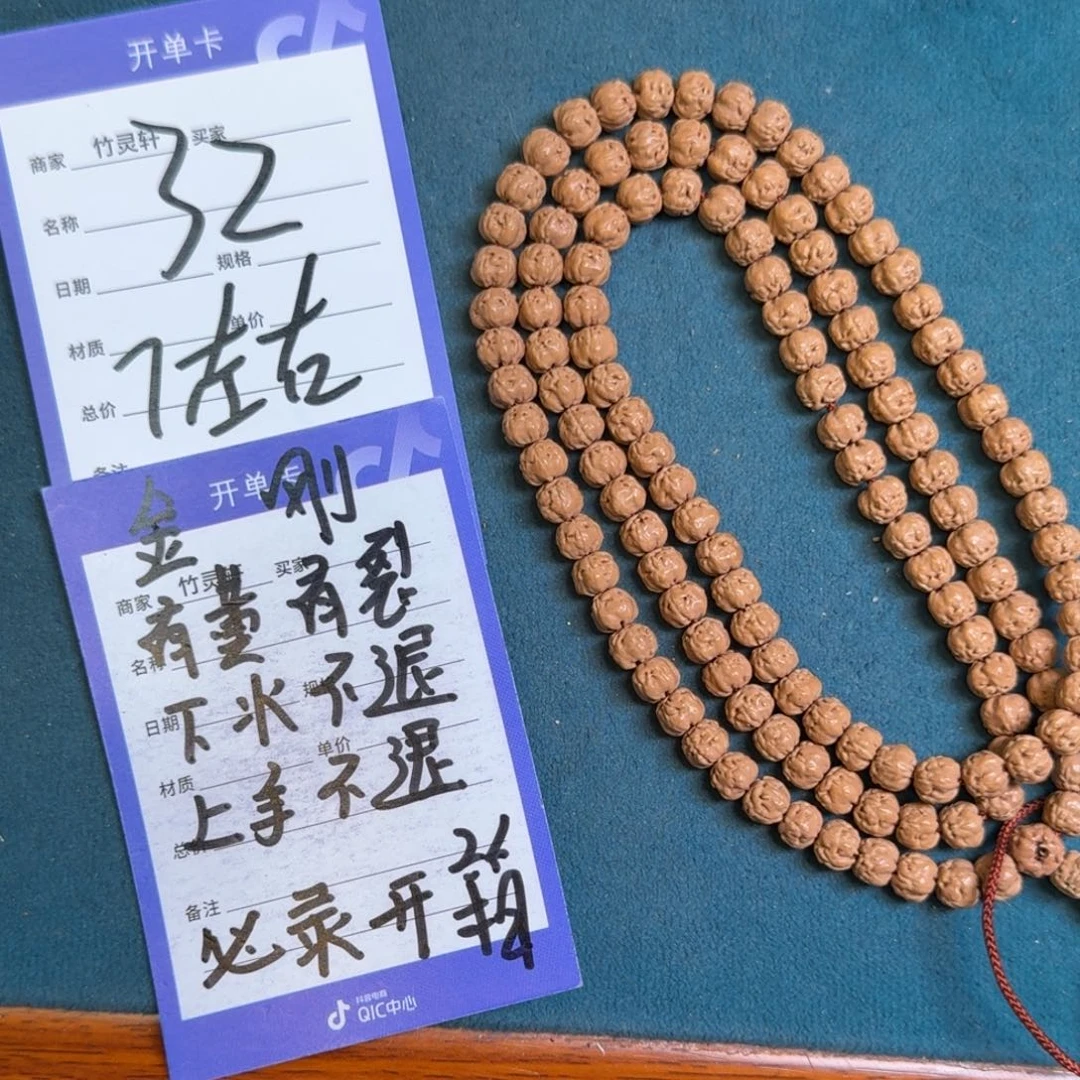 开单卡
商家 竹灵轩 买家
32
名称
日期 规格
7左右
材质 单价
总价
备注
开单卡
金刚
商家 竹灵轩 买家
有董 有裂
名称
下水不退
日期 规
上手不退
材质 单价
总价
备注
必录开箱
抖音电商
QIC中心